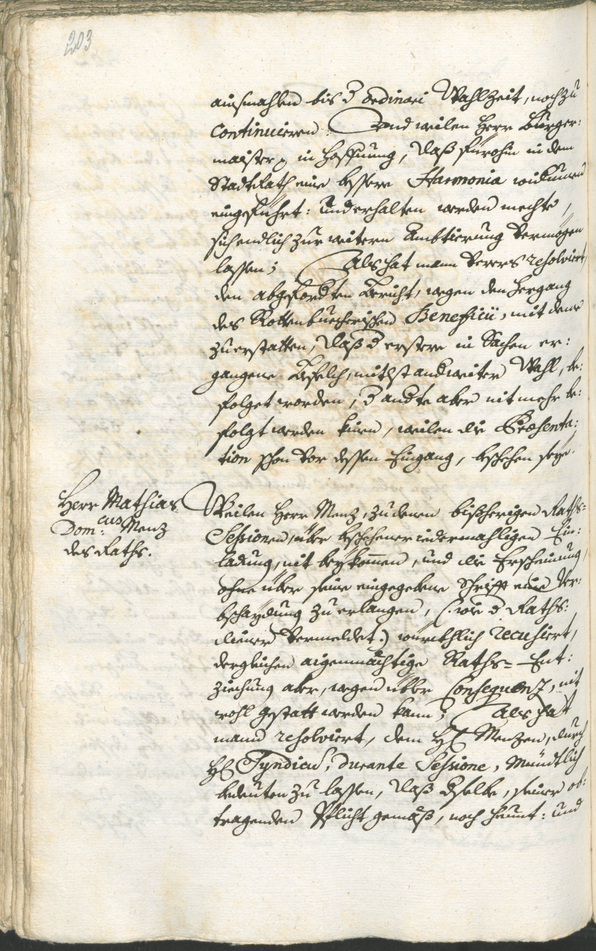 203
ausmahlen bis d ordinari Wahlzeit, noch zu
continuieren: Und weilen Herr Burger:
maister, in Hoffnung, daß fürohin in dem
StadtRath eine bessere Harmonia
eingeführt: und erhalten werden mechte,
sich endlich zur weitern Ambtierung vermögen
lassen; Als hat mann resolviert,
den abgeforderten Bericht, wegen dem Hergang
des Rottenbuecherischen Beneficii, mit deme
zu erstatten, daß d erstere in Sachen er:
gangene Befelch, mitlst anderweiter Wahl, be:
folget worden, d andte aber nit mehr be:
folgt werden kenen, weilen die Praesenta:
tion schon vor dessen Eingang, beschehen seye.
Herr Mathias
Dom:cus Menz
des Raths.
Weilen Herr Menz, zu denen bißherigen Raths=
Sessionen, über beschehene iedermahligen Ein:
ladung, nit beykommen, und die Erscheinung,
ohne über seine eingegebene Schrifft eine Ver:
bschaydung zu erlangen, (wie d Raths:
diener vermeldet) würckhlich recusiert,
dergleichen aigenmächtige Raths= Ent:
ziehung aber, wegen übler Consequenz, nit
wohl gestatt werden kann; Als hat
mann resolviert, dem H: Menzen, durch
H: Syndicu, durante Sessione, mündtlich
bedeuten zu lassen, daß dselbe, seiner ob:
tragenden Pflicht gemäß, noch heunt: und